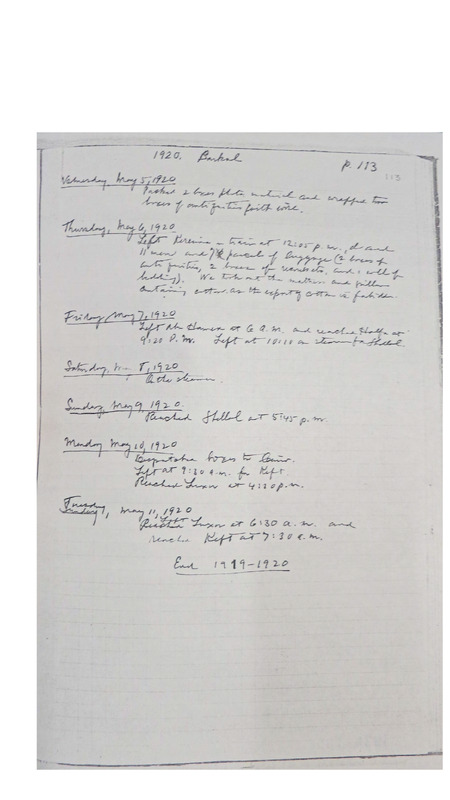 1920. Barkal
p. 113
113
Wednesday May 5, 1920
Packed 2 boxes photo material and wrapped two
boxes of antiquities with wire.
Thursday, May 6, 1920
Left Kereima – train at 12:05 p.m., and
11 men and parcel of luggage (2 boxes of
antiquities, 2 boxes of and 1 roll of
bedding). We the and
containing cotton as the export of cotton is forbidden.
Friday, May 7, 1920
Left Abu Hamed at 6 a.m. and reached Halfa at
9:20 P.M. Left at 10:10 on steamer for Shellal
Saturday, May 8, 1920
On the steamer.
Sunday, May 9, 1920.
Reached Shellal at 5:45 p.m.
Monday May 10, 1920
Despatched boxes to Cairo.
Left at 9:30 a.m. for Keft.
Reached Luxor at 4:30 p.m.
Tuesday, May 11, 1920
Left Luxor at 6:30 a.m. and
reached Keft at 7:30 a.m.
End 1919-1920